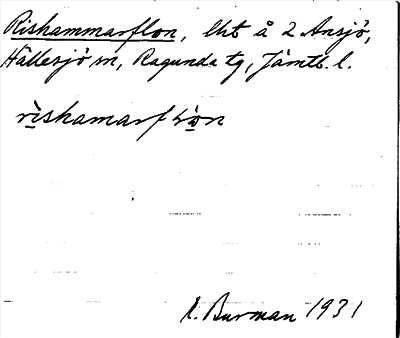 Rishammarflon, lht å 2 Ansjö,
Hällesjö sn, Ragunda tg, Jämtl. l.
rishamarf
E. Burman 1931